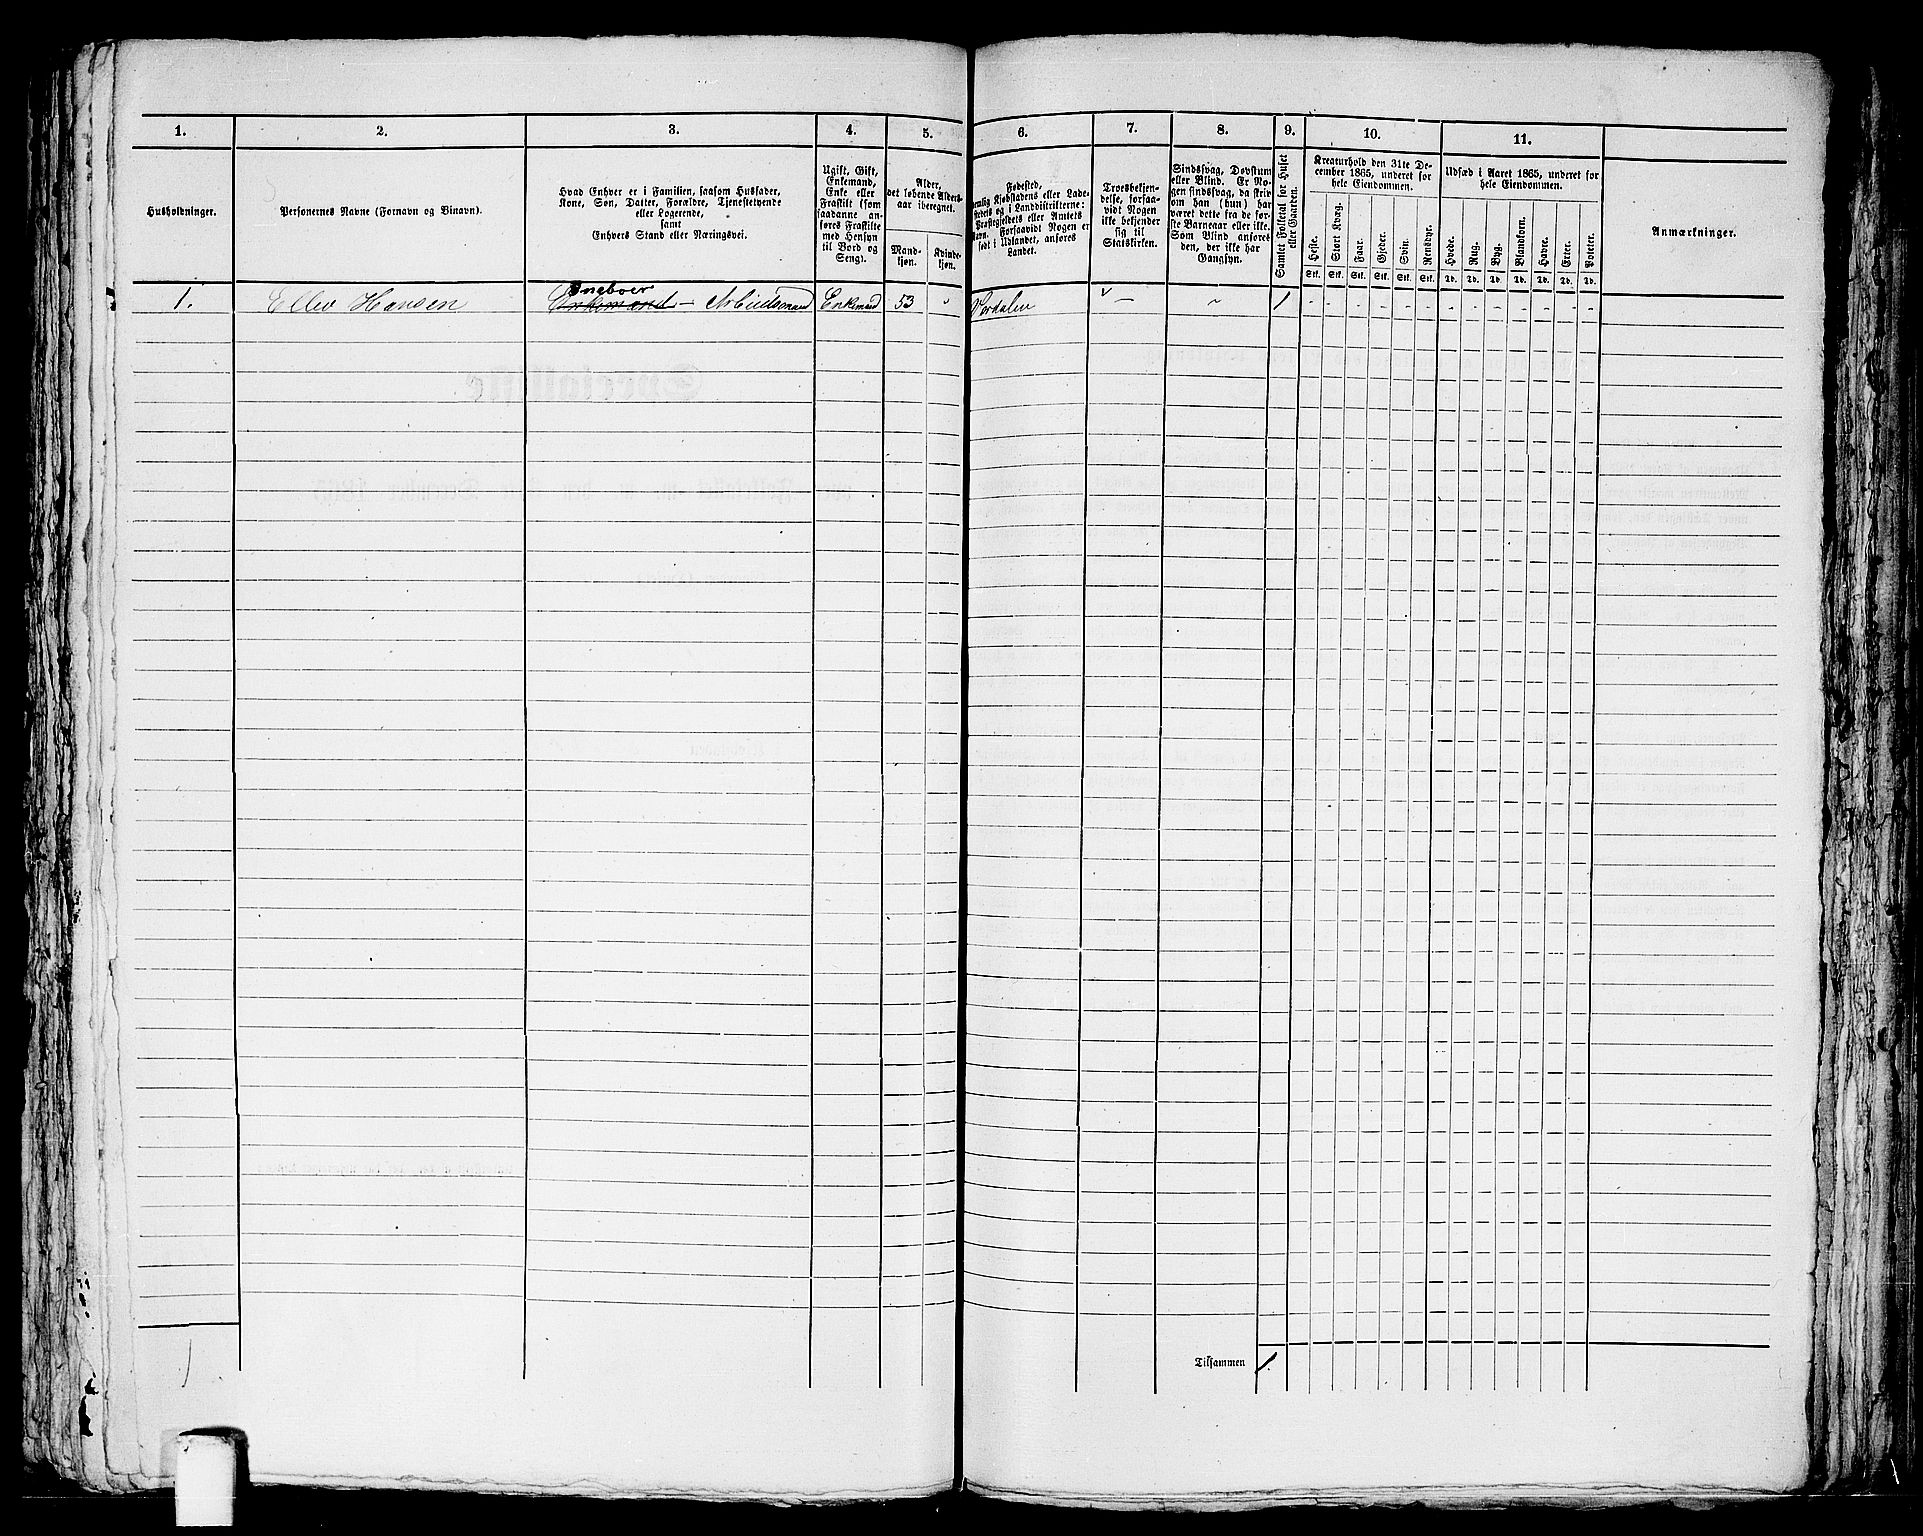 1.
2.
3.
4.
5.
6.
7.
8.
9.
10.
11.
Husholdninger.
Personernes Navne (Fornavn og Binavn).
Hvad Enhver er i Familien, saasom Husfader,
Kone, Søn, Datter, Forældre, Tjenestetyende
eller Logerende,
samt
Enhvers Stand eller Næringsvei.
Ugift, Gift,
Enkemand,
Enke eller
Fraskilt (som
saadanne an-
føres Fraskilte
med Hensyn
til Bord og
Seng).
Alder,
det løbende Alders-
aar iberegnet.
Mand-
kjøn.
Kvinde-
kjøn.
Fødested,
nemlig Kjøbstadens eller Lade-
stedets og i Landdistrikterne:
Præstegjeldets eller Amtets
Navn. Forsaavidt Nogen er
født i Udlandet, anføres
Landet.
Troesbekjen-
delse, forsaa-
vidt Nogen
ikke bekjender
sig til
Statskirken.
Sindssvag, Døvstum
eller Blind. Er No-
gen sindssvag, da skriv
om han (hun) har
været dette fra de før-
ste Barneaar eller ikke.
Som Blind anføres
den, der ikke har
Gangsyn.
Samlet Folketal for Huset
eller Gaarden.
Kreaturhold den 31te De-
cember 1865, underet for
hele Eiendommen.
Heste.
Stort Kvæg.
Faar.
Gjeder.
Svin.
Rensdyr.
Stk. Stk. Stk. Stk. Stk. Stk.
Udsæd i Aaret 1865, underet for
hele Eiendommen.
Hvede.
Rug.
Byg.
Blandkorn.
Havre.
Erter.
Poteter.
Td. Td. Td. Td. Td. Td. Td.
Anmærkninger.
Inaboer
1. Ellev Hansen Enkemand – Arbeidsmand Enkemand 53 " Værdalen – " 1 - - - - - - - - - - - - -
Tilsammen 1.
1